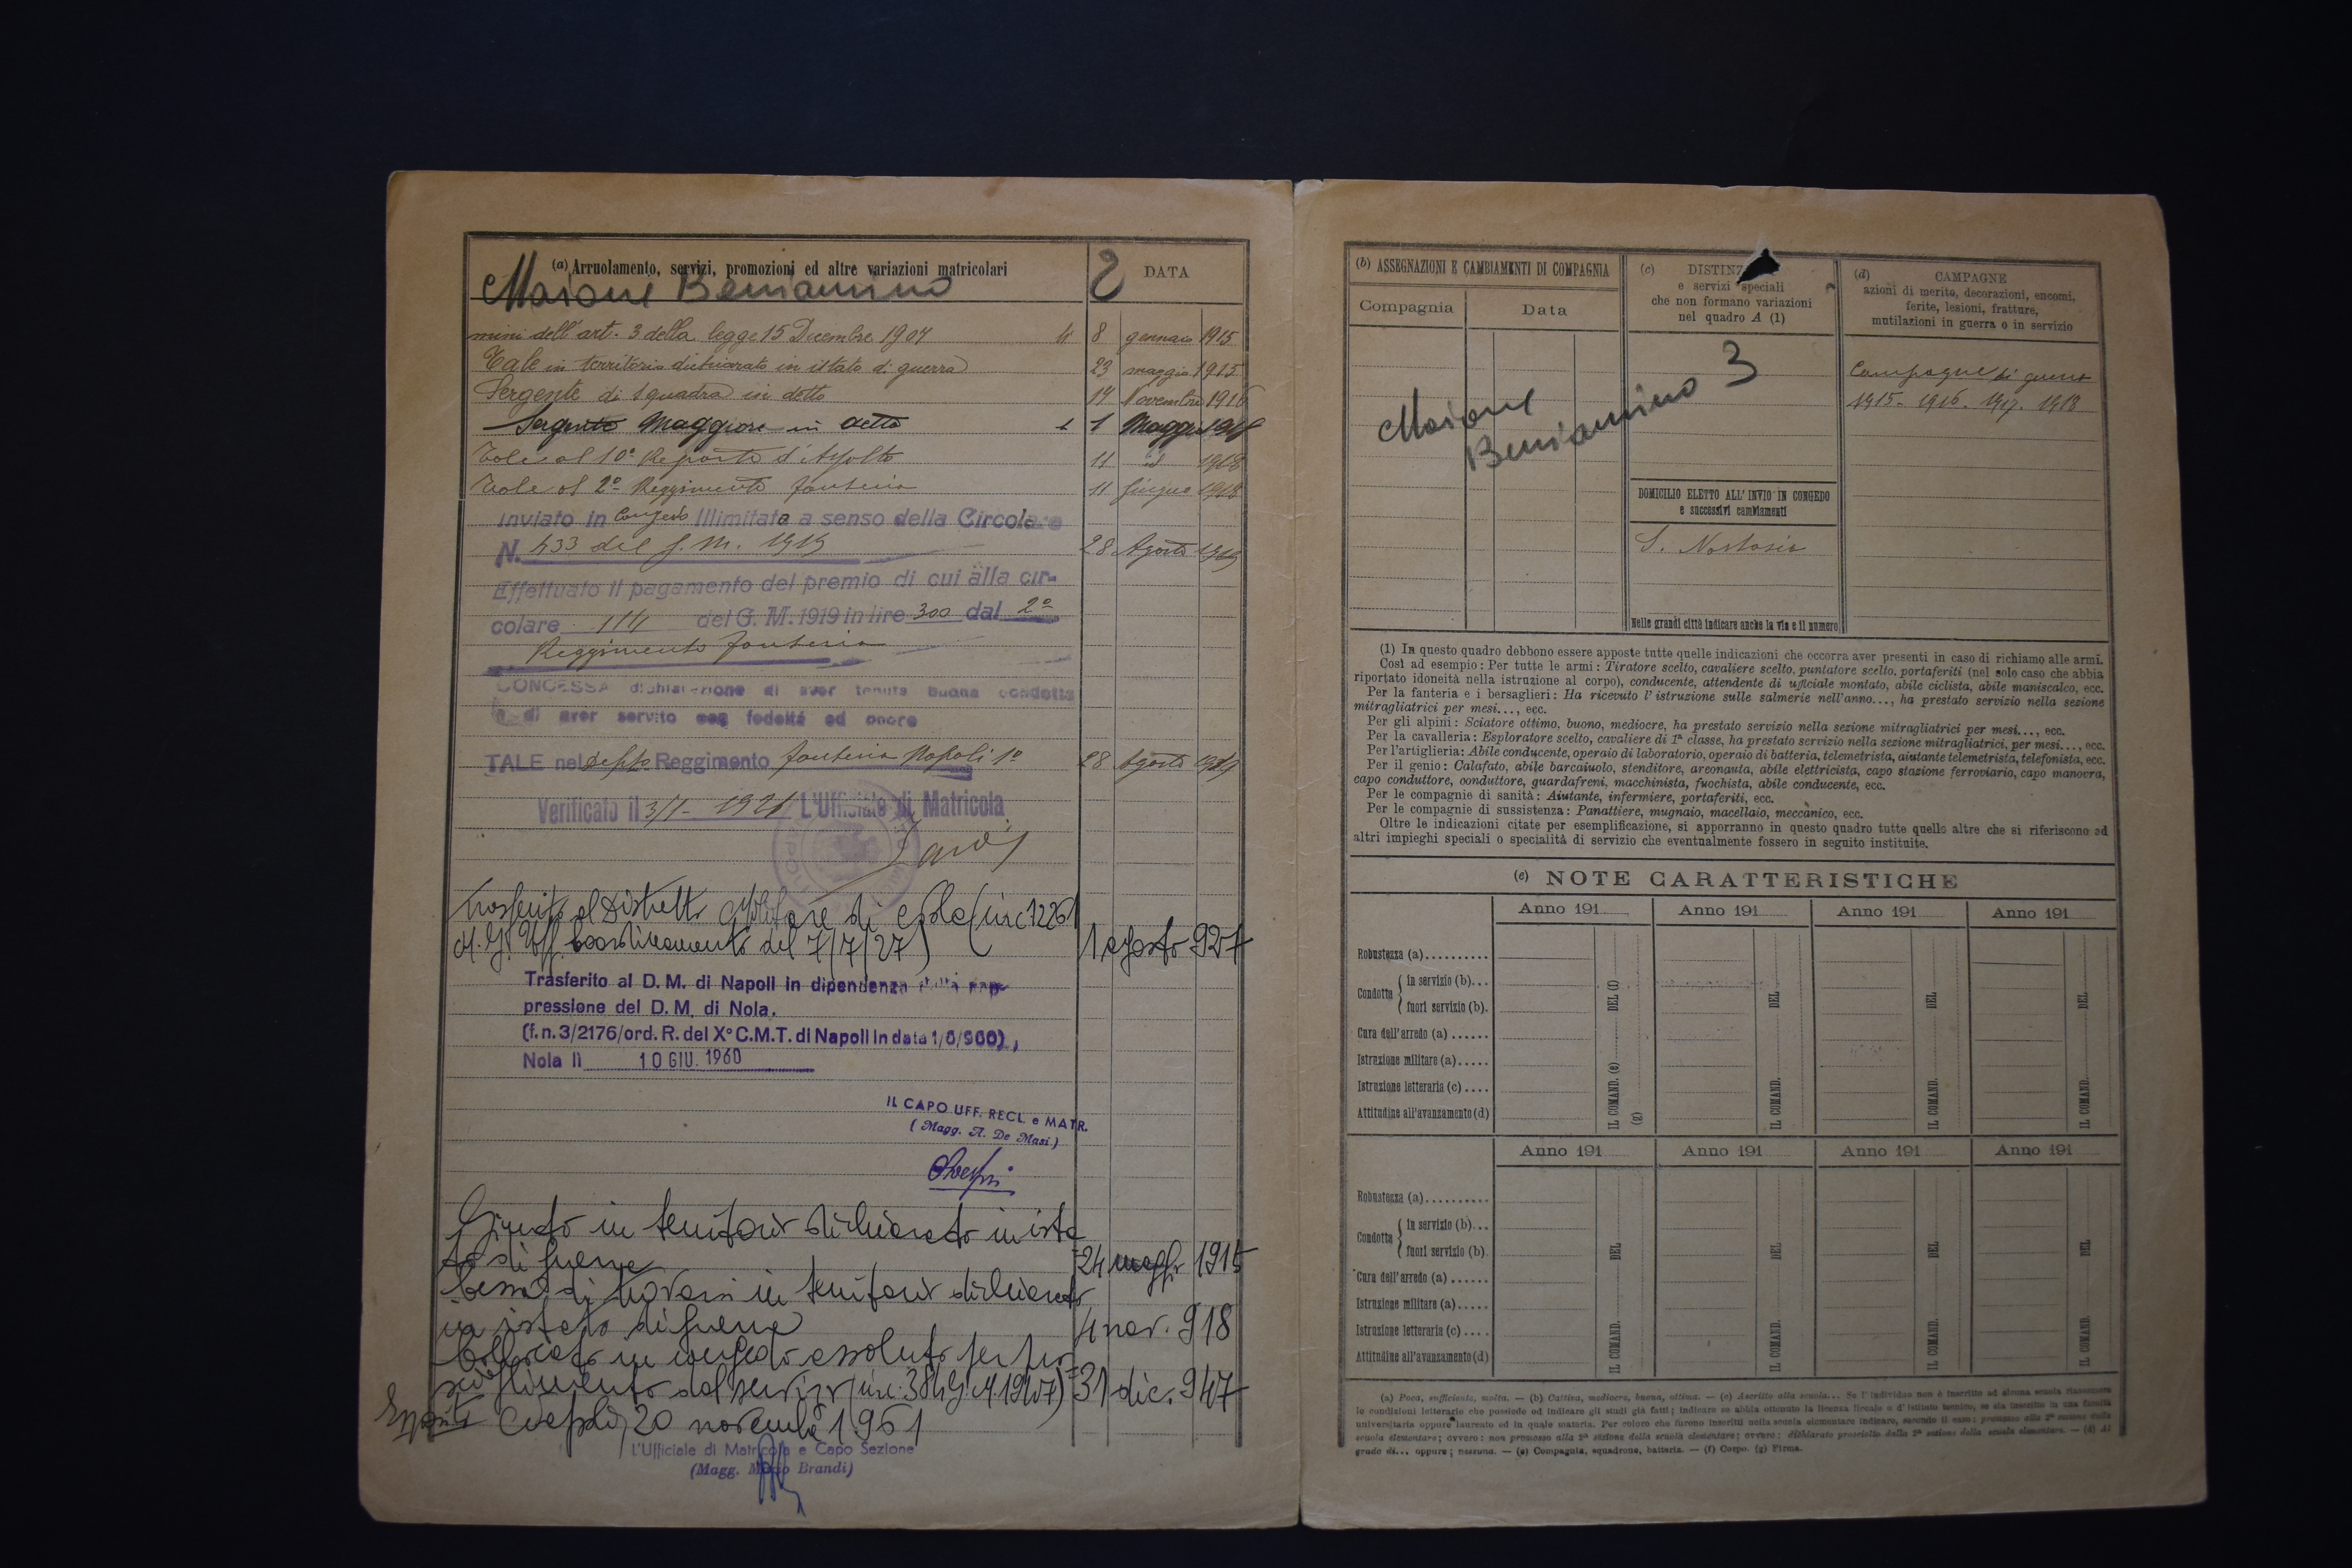 (a) Arruolamento, servizi, promozioni ed altre variazioni matricolari
2
DATA
Maione Beniamino
mini dell'art. 3 della legge 15 Decembre 1907 li 8 gennaio 1915
Tale in territorio dichiarato in istato di guerra 23 maggio 1915
Sergente di squadra in detto 14 Novembre 1916
Sergente Maggiore in detto 1 Maggio
Tale al 10° Reparto d'Assalto 11 id 1918
Tale al 2° Reggimento fanteria 11 Giugno 1918
Inviato in Congedo Illimitato a senso della Circolare
N. 433 del G. M. 1919 28 Agosto 1919
Effettuato il pagamento del premio di cui alla cir-
colare 114 del G. M. 1919 in lire 300 dal 2°
Reggimento fanteria
CONCESSA dichiarazione di aver tenuta buona condotta
e di aver servito con fedeltà ed onore
TALE nel Depto Reggimento fanteria Napoli 1° 28 Agosto 1919
Verificato il 3/1- 1921 L'Ufficiale di Matricola
Trasferito al Distretto Militare di Nola (circ 1226
M. G. Uff. Coordinamento del 7/7/27) 1 agosto 927
Trasferito al D. M. di Napoli in dipendenza della sop-
pressione del D. M. di Nola.
(f. n. 3/2176/ord. R. del X° C.M.T. di Napoli in data 1/6/960),
Nola lì 10 GIU. 1960
IL CAPO UFF. RECL. e MATR.
(Magg. A. De Masi)
Giunto in territorio dichiarato in ista
to di guerra 24 maggio 1915
Cessa di trovarsi in territorio dichiarato
in istato di guerra 4 nov. 918
Collocato in congedo assoluto per pro
scioglimento dal servizio (circ. 384 G. M. 1947) = 31 dic. 947
Napoli, 20 novembre 1961
L'Ufficiale di Matricola e Capo Sezione
(Magg. Mario Brandi)
(b) ASSEGNAZIONI E CAMBIAMENTI DI COMPAGNIA
Compagnia
Data
Maione
Beniamino 3
(c) DISTINZ
e servizi speciali
che non formano variazioni
nel quadro A (1)
DOMICILIO ELETTO ALL'INVIO IN CONGEDO
e successivi cambiamenti
S. Nastasio
Nelle grandi città indicare anche la via e il numero
(d) CAMPAGNE
azioni di merito, decorazioni, encomi,
ferite, lesioni, fratture,
mutilazioni in guerra o in servizio
Campagne di guerra
1915. 1916. 1917. 1918
(1) In questo quadro debbono essere apposte tutte quelle indicazioni che occorra aver presenti in caso di richiamo alle armi.
Così ad esempio: Per tutte le armi: Tiratore scelto, cavaliere scelto, puntatore scelto, portaferiti (nel solo caso che abbia
riportato idoneità nella istruzione al corpo), conducente, attendente di ufficiale montato, abile ciclista, abile maniscalco, ecc.
Per la fanteria e i bersaglieri: Ha ricevuto l'istruzione sulle salmerie nell'anno..., ha prestato servizio nella sezione
mitragliatrici per mesi..., ecc.
Per gli alpini: Sciatore ottimo, buono, mediocre, ha prestato servizio nella sezione mitragliatrici per mesi..., ecc.
Per la cavalleria: Esploratore scelto, cavaliere di 1ª classe, ha prestato servizio nella sezione mitragliatrici, per mesi..., ecc.
Per l'artiglieria: Abile conducente, operaio di laboratorio, operaio di batteria, telemetrista, aiutante telemetrista, telefonista, ecc.
Per il genio: Calafato, abile barcaiuolo, stenditore, areonauta, abile elettricista, capo stazione ferroviario, capo manovra,
capo conduttore, conduttore, guardafreni, macchinista, fuochista, abile conducente, ecc.
Per le compagnie di sanità: Aiutante, infermiere, portaferiti, ecc.
Per le compagnie di sussistenza: Panattiere, mugnaio, macellaio, meccànico, ecc.
Oltre le indicazioni citate per esemplificazione, si apporranno in questo quadro tutte quelle altre che si riferiscono ad
altri impieghi speciali o specialità di servizio che eventualmente fossero in seguito instituite.
(e) NOTE CARATTERISTICHE
Anno 191 Anno 191 Anno 191 Anno 191
Robustezza (a)..........
Condotta { in servizio (b)...
fuori servizio (b).
Cura dell'arredo (a) ......
Istruzione militare (a).....
Istruzione letteraria (c) ....
Attitudine all'avanzamento (d)
IL COMAND. (e) DEL (f)
(g)
IL COMAND. DEL
IL COMAND. DEL
IL COMAND. DEL
Anno 191 Anno 191 Anno 191 Anno 191
Robustezza (a)..........
Condotta { in servizio (b)...
fuori servizio (b).
Cura dell'arredo (a) ......
Istruzione militare (a).....
Istruzione letteraria (c) ....
Attitudine all'avanzamento (d)
IL COMAND. DEL
IL COMAND. DEL
IL COMAND. DEL
IL COMAND. DEL
(a) Poca, sufficiente, molta. — (b) Cattiva, mediocre, buona, ottima. — (c) Ascritto alla scuola... Se l'individuo non è inscritto ad alcuna scuola riassumere
le condizioni letterarie che possiede od indicare gli studi già fatti; indicare se abbia ottenuto la licenza liceale o d'istituto tecnico, se sia inscritto in una facoltà
universitaria oppure laureato ed in quale materia. Per coloro che furono inscritti nella scuola elementare indicare, secondo il caso: promosso alla 2ª sezione della
scuola elementare; ovvero: non promosso alla 2ª sezione della scuola elementare; ovvero: dichiarato prosciolto dalla 2ª sezione della scuola elementare. — (d) Al
grado di... oppure; nessuna. — (e) Compagnia, squadrone, batteria. — (f) Corpo. (g) Firma.